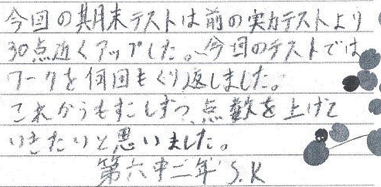 今回の期末テストは前の実力テストより
30点近くアップした。今回のテストでは
ワークを何回もくり返しました。
これからもすこしずつ点数を上げて
いきたいと思いました。
第六中二年 S.K